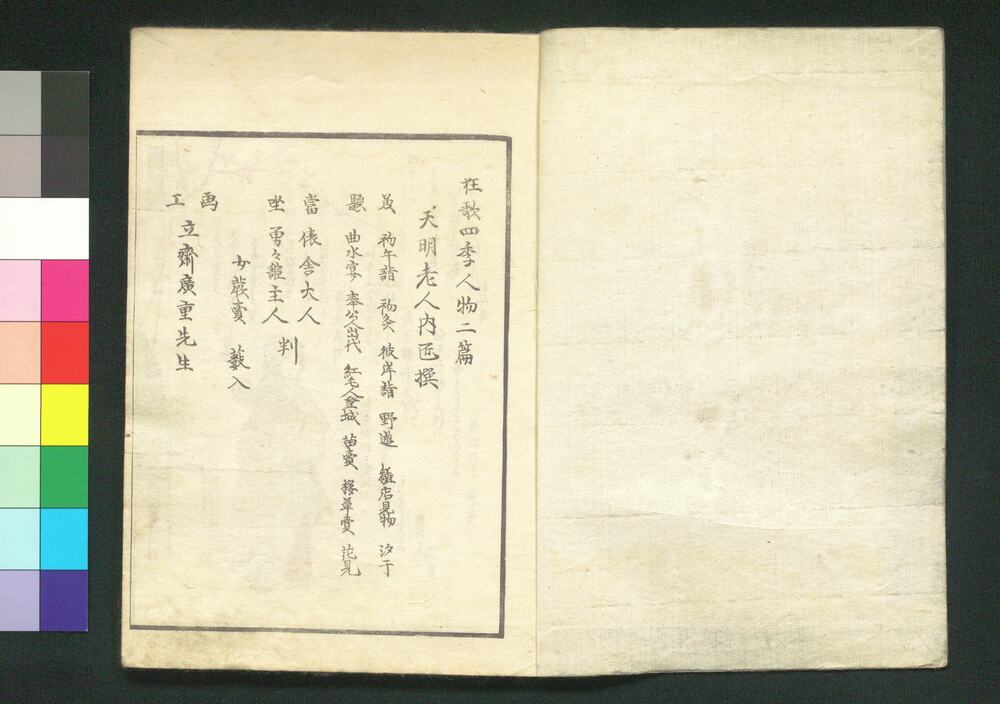 狂歌四季人物二篇
天明老人内匠撰
兼 初午詣 初灸 彼岸詣 野遊 雛店見物 汐干
題 曲水宴 奉公人出代 紅毛人登城 苗賣 桜草賣 花見
當 俵舎大人
坐 勇々舘主人 判
女 蔵賣 藪入
画
工 立齋廣重先生